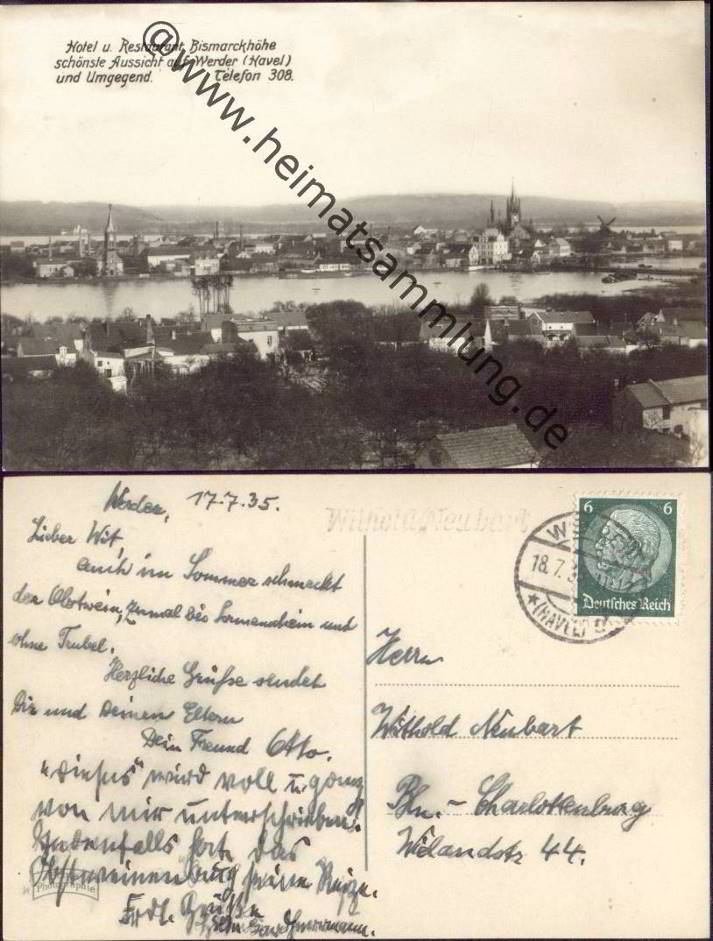 Hotel u. Restaurant Bismarckhöhe
schönste Aussicht auf Werder (Havel)
und Umgegend. Telefon 308.
@www.heimatsammlung.de
Werder, 17.7.35.
Lieber Wit,
auch im Sommer schmeckt
der Obstwein, zumal bei Sonnenschein und
ohne Trubel.
Herzliche Grüße sendet
Dir und Deinen Eltern
Dein Freund Otto.
"dieses" wird voll u. ganz
von mir unterschrieben!
Jedenfalls hat das
seine Reize.
Frdl. Grüße
Withold Neubart
6 6
Deutsches Reich
18.7.3
(HAVEL)
Herrn
Withold Neubart
Bln.-Charlottenburg
Wielandstr. 44.
Photographie